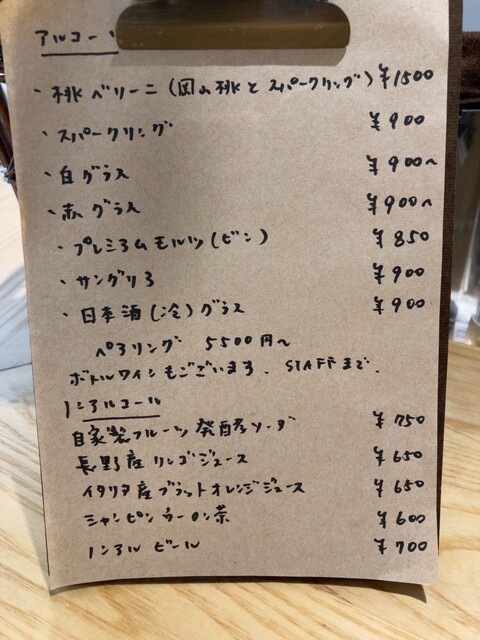 アルコール
・桃ベリーニ(岡山桃とスパークリング) ¥1500
・スパークリング ¥900
・白グラス ¥900〜
・赤グラス ¥900〜
・プレミアムモルツ(ビン) ¥850
・サングリア ¥900
・日本酒(冷)グラス ¥900
ペアリング 5500円〜
ボトルワインもございます. STAFFまで.
ノンアルコール
自家製フルーツ発酵ソーダ ¥750
長野産リンゴジュース ¥650
イタリア産ブラットオレンジジュース ¥650
シャンピンウーロン茶 ¥600
ノンアルビール ¥700